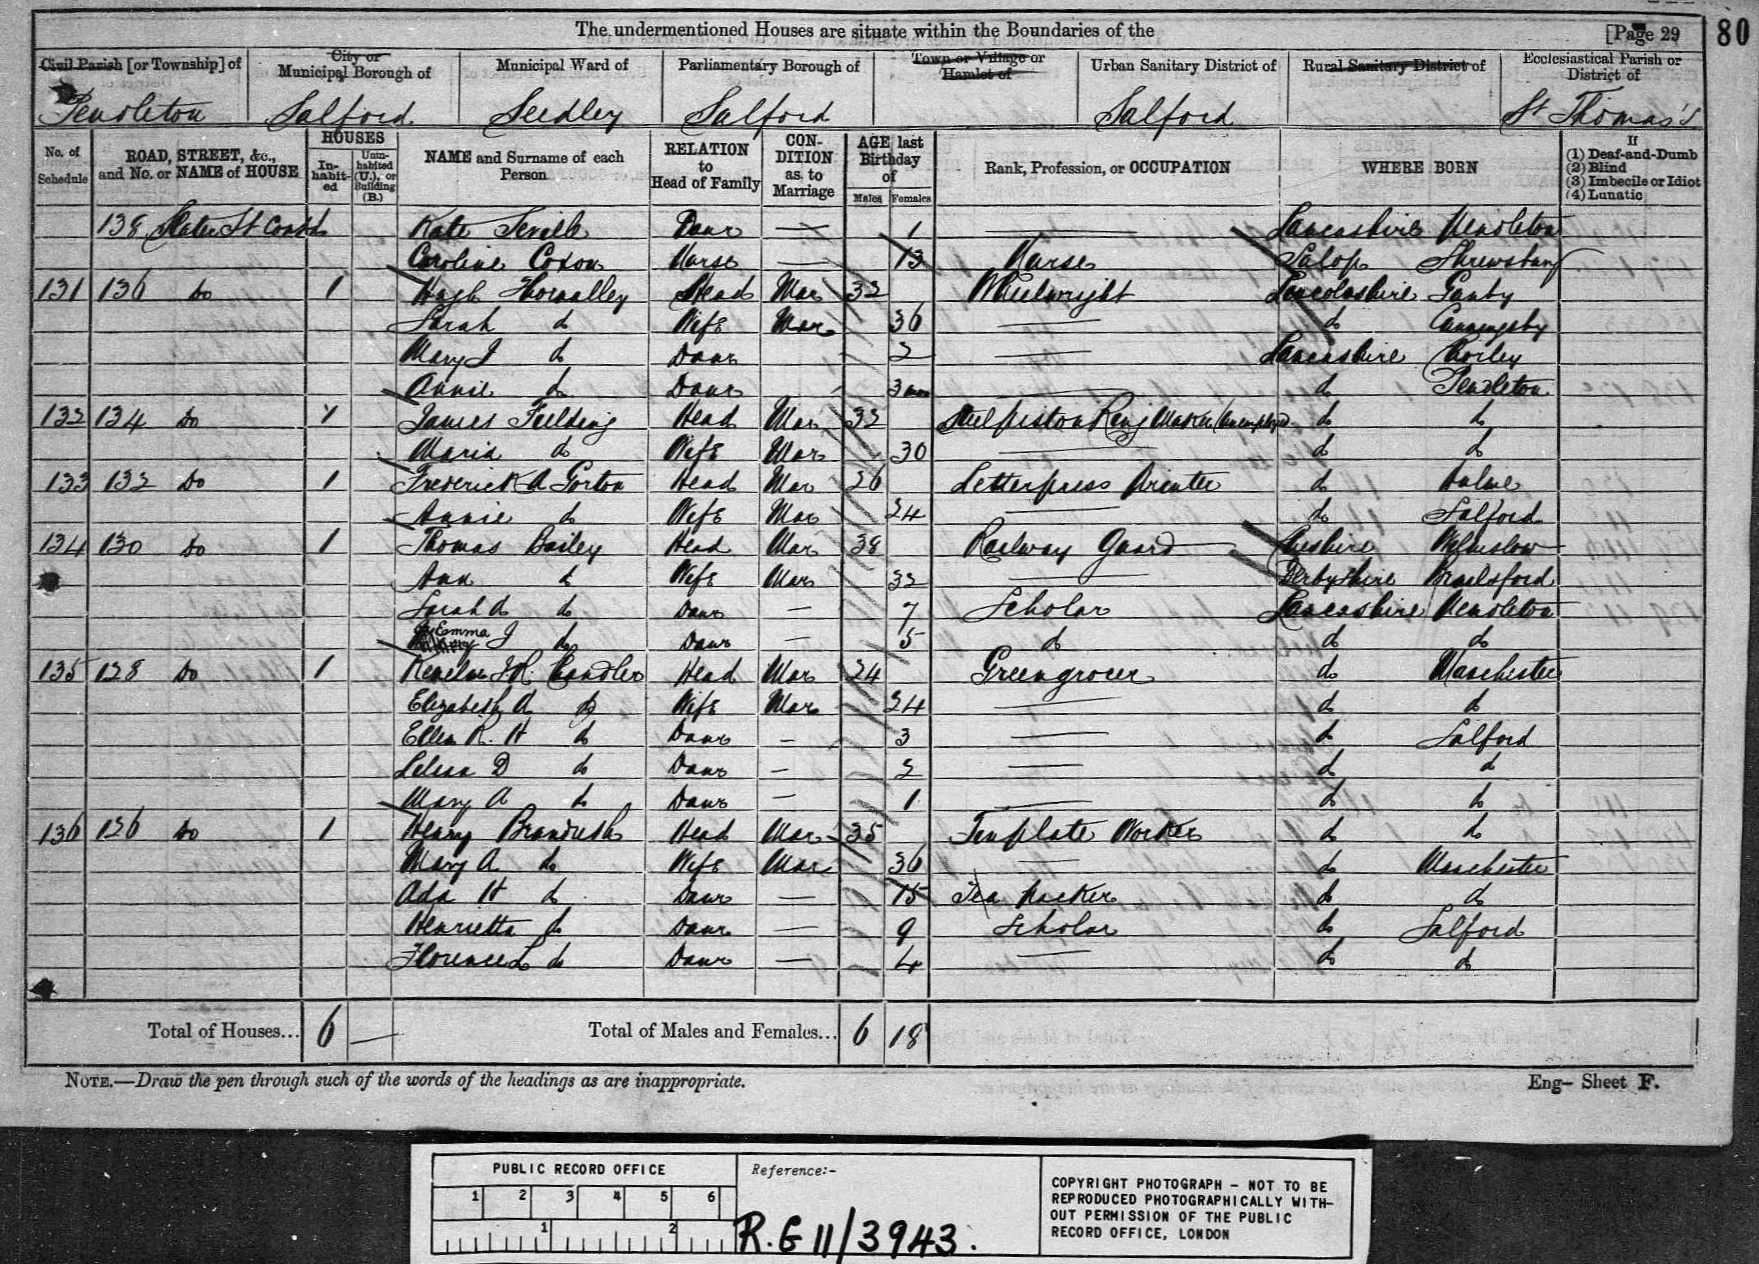 The undermentioned Houses are situate within the Boundaries of the [Page 29 80
Civil Parish [or Township] of City or Municipal Borough of Municipal Ward of Parliamentary Borough of Town or Village or Hamlet of Urban Sanitary District of Rural Sanitary District of Ecclesiastical Parish or District of
Pendleton Salford Seedley Salford Salford St Thomas's
No. of Schedule ROAD, STREET, &c., and No. or NAME of HOUSE HOUSES In-habit-ed Unin-habited (U.), or Building (B.) NAME and Surname of each Person RELATION to Head of Family CON-DITION as to Marriage AGE last Birthday of Males Females Rank, Profession, or OCCUPATION WHERE BORN If (1) Deaf-and-Dumb (2) Blind (3) Imbecile or Idiot (4) Lunatic
138 St Contd Kate Seville Daur — 1 — Lancashire Pendleton
Caroline Coxon Nurse — 13 Nurse Salop Shrewsbury
131 136 Do 1 Hugh Head Mar 32 Wheelwright Lincolnshire
Sarah do Wife Mar 36 — do
Mary J do Daur 2 — Lancashire Chorley
Annie do Daur 3 mos — do Pendleton
132 134 Do 1 James Fielding Head Mar 32 Steel piston Ring Maker (Unemployed do do
Maria do Wife Mar 30 — do do
133 132 Do 1 Frederick A Gorton Head Mar 26 Letterpress Printer do Hulme
Annie do Wife Mar 24 — do Salford
134 130 Do 1 Thomas Bailey Head Mar 38 Railway Guard Cheshire Wilmslow
Ann do Wife Mar 32 — Derbyshire Brailsford
Sarah A do Daur — 7 Scholar Lancashire Pendleton
Emma J do Daur — 5 do do do
135 128 Do 1 Kenelm Chandler Head Mar 24 Greengrocer do Manchester
Elizabeth A do Wife Mar 24 — do do
Ellen K. H do Daur — 3 — do Salford
D do Daur — 2 — do do
Mary A do Daur — 1 — do do
136 126 Do 1 Henry Brandreth Head Mar 35 Tinplate Worker do do
Mary A do Wife Mar 36 — do Manchester
Ada H do Daur — 15 Tea Packer do do
Henrietta do Daur — 9 Scholar do Salford
Florence L do Daur — 4 — do do
Total of Houses... 6 — Total of Males and Females... 6 18
NOTE.—Draw the pen through such of the words of the headings as are inappropriate. Eng— Sheet F.
PUBLIC RECORD OFFICE
1 2 3 4 5 6
1 2
Reference:-
R.G 11/3943.
COPYRIGHT PHOTOGRAPH - NOT TO BE
REPRODUCED PHOTOGRAPHICALLY WITH-
OUT PERMISSION OF THE PUBLIC
RECORD OFFICE, LONDON